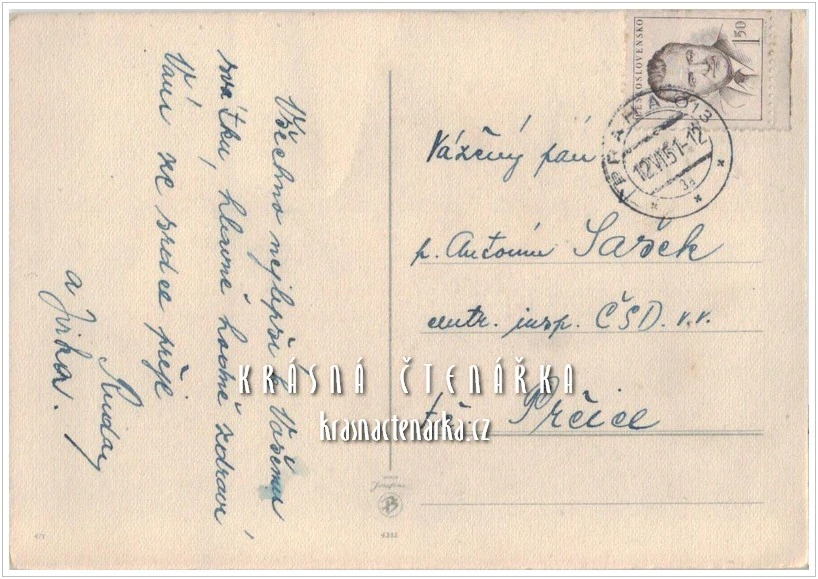 Všechno nejlepší k Vašemu
svátku, hlavně hodně zdraví
Vám ze srdce přeje
a Jirka.
ČESKOSLOVENSKO
1.50
PRAHA 013
12.VI.51-12
3d
Vážený pán
p. Antonín Sašek
centr. insp. ČSD. v. v.
Prčice
KRÁSNÁ ČTENÁŘKA
krasnactenarka.cz
4382